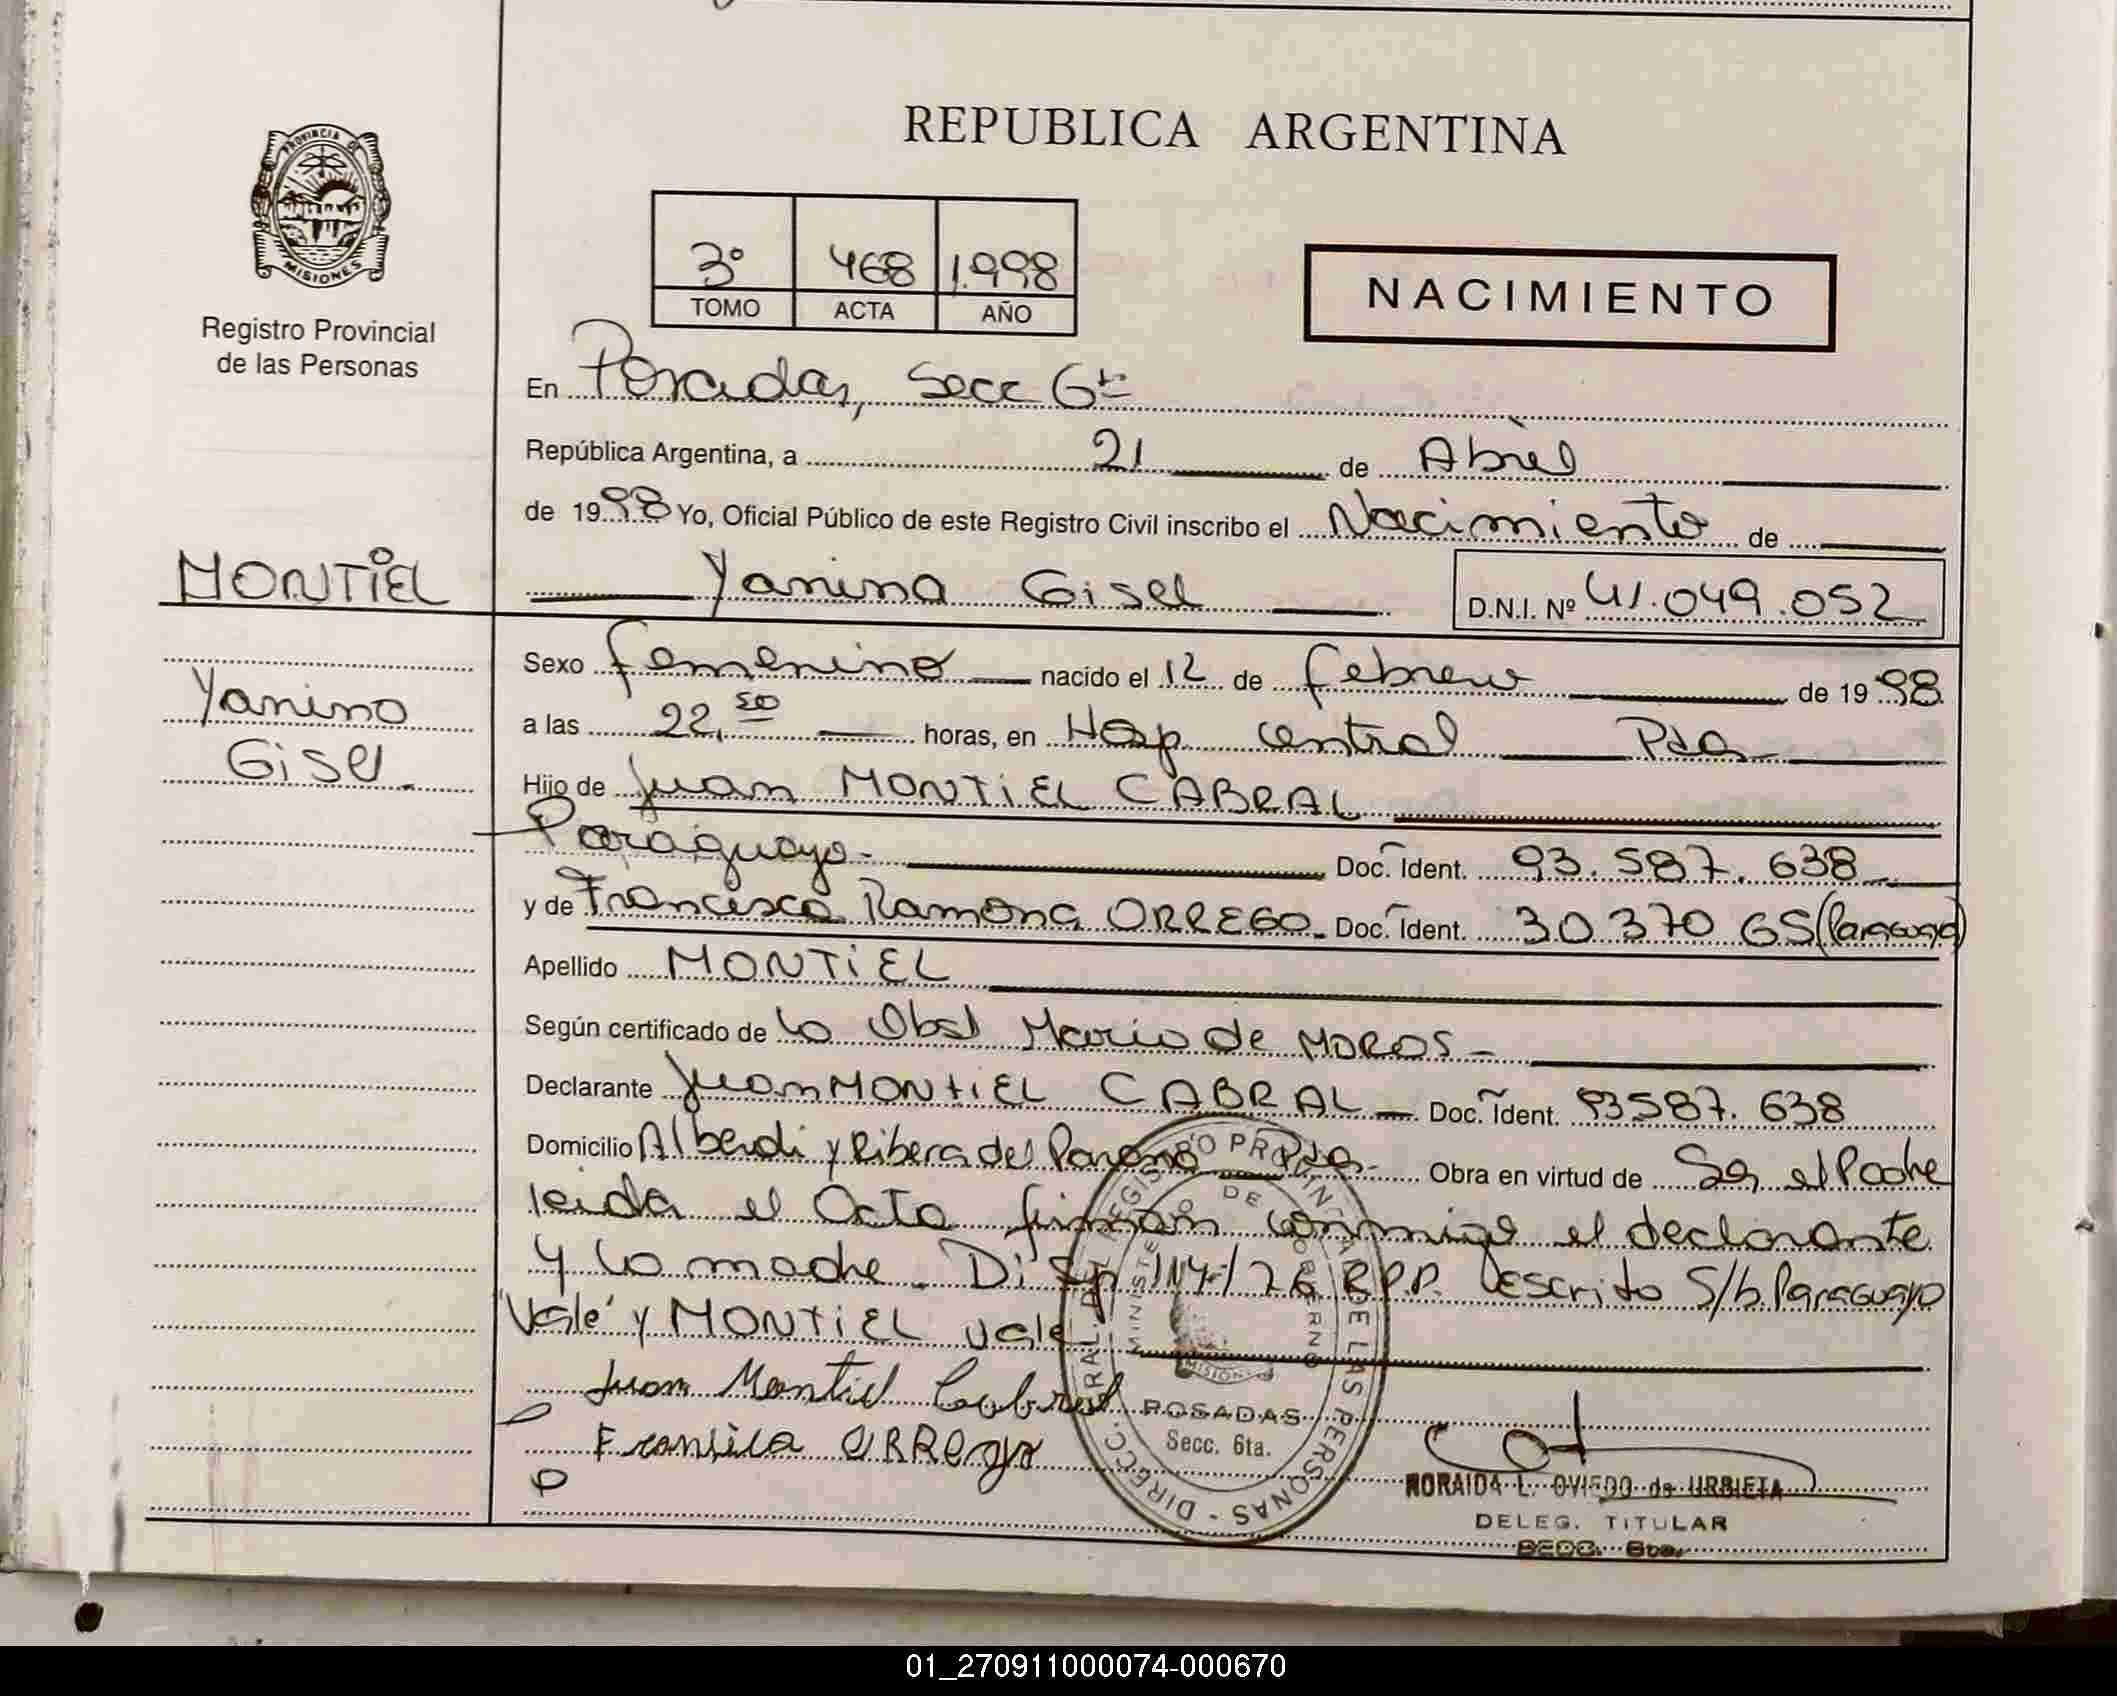 REPUBLICA ARGENTINA
PROVINCIA DE
MISIONES
Registro Provincial
de las Personas
3º 468 1.998
TOMO ACTA AÑO
NACIMIENTO
En Posadas, Secc 6ta
República Argentina, a 21 de Abril
de 1998 Yo, Oficial Público de este Registro Civil inscribo el Nacimiento de
MONTIEL
Yanina Gisel D.N.I. Nº 41.049.052
Yanina
Gisel.
Sexo femenino nacido el 12 de febrero de 1998
a las 22,50 horas, en Hosp central Pdas
Hijo de Juan MONTIEL CABRAL
Paraguayo- Doc. Ident. 93.587.638
y de Francisca Ramona ORREGO- Doc. Ident. 30 370 65 (Paraguay)
Apellido MONTIEL
Según certificado de la Obst Maria de MOROS-
Declarante Juan MONTIEL CABRAL- Doc. Ident. 93587.638
Domicilio Alberdi y Ribera del Paraná Pdas- Obra en virtud de Ser el Padre
leida el Acta firman conmigo el declarante
y la madre. Disp 114/76 R.P.P. escrito S/b. Paraguayo
"Vale" y MONTIEL vale
Juan Montiel Cabral
Francisca ORRego
DIRECC. GRAL. DEL REGISTRO PROVINCIAL DE LAS PERSONAS -
MINISTERIO DE GOBIERNO
MISIONES
POSADAS
Secc. 6ta.
NORAIDA L. OVIEDO de URBIETA
DELEG. TITULAR
SECC. 6ta.
01_270911000074-000670